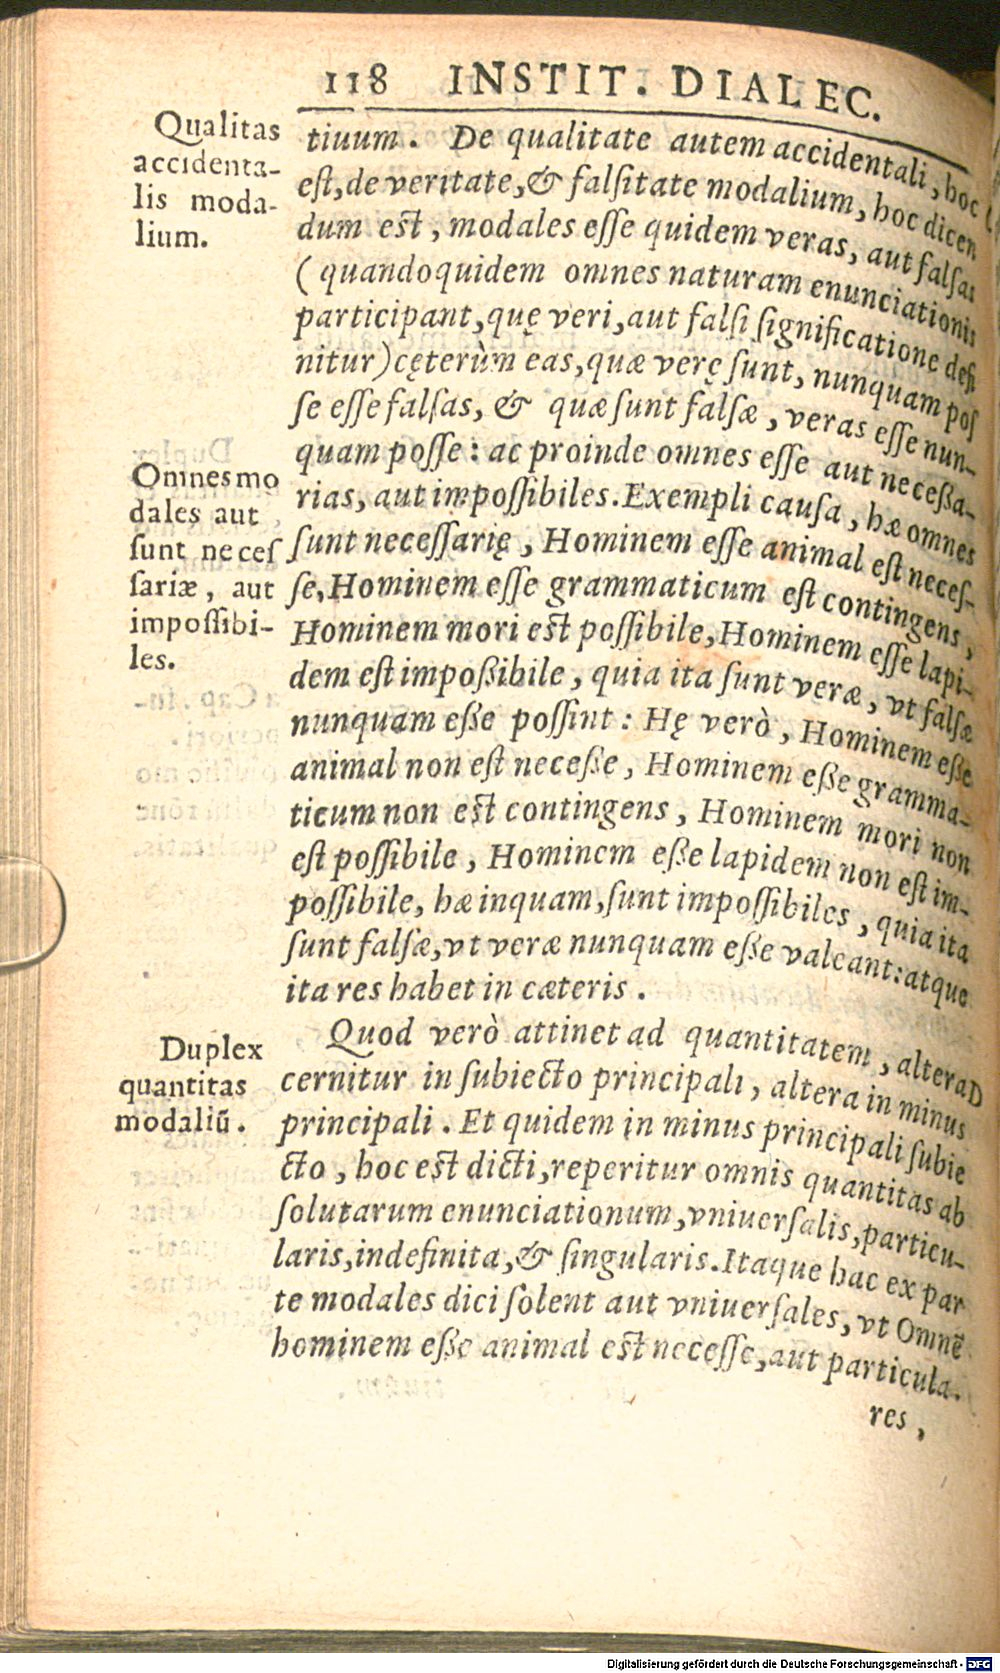 118 INSTIT. DIALEC.
Qualitas
accidenta-
lis moda-
lium.
tiuum. De qualitate autem accidentali, hoc
est, de veritate, & falsitate modalium, hoc dicen
dum est, modales esse quidem veras, aut falsas
(quandoquidem omnes naturam enunciationis
participant, quę veri, aut falsi significatione defi
nitur) cęterùm eas, quæ verę sunt, nunquam pos
se esse falsas, & quæ sunt falsæ, veras esse nun-
quam posse: ac proinde omnes esse aut necessa-
rias, aut impossibiles. Exempli causa, hæ omnes
sunt necessarię, Hominem esse animal est neces-
se, Hominem esse grammaticum est contingens,
Hominem mori est possibile, Hominem esse lapi-
dem est impossibile, quia ita sunt veræ, vt falsæ
nunquam esse possint: Hę verò, Hominem esse
animal non est necesse, Hominem esse gramma-
ticum non est contingens, Hominem mori non
est possibile, Hominem esse lapidem non est im-
possibile, hæ inquam, sunt impossibiles, quia ita
sunt falsæ, vt veræ nunquam esse valeant: atque
ita res habet in cæteris.
Omnes mo
dales aut
sunt neces
sariæ, aut
impossibi-
les.
Duplex
quantitas
modaliũ.
Quod verò attinet ad quantitatem, altera
cernitur in subiecto principali, altera in minus
principali. Et quidem in minus principali subie
cto, hoc est dicti, reperitur omnis quantitas ab
solutarum enunciationum, vniuersalis, particu-
laris, indefinita, & singularis. Itaque hac ex par
te modales dici solent aut vniuersales, vt Omnẽ
hominem esse animal est necesse, aut particula-
res,
Digitalisierung gefördert durch die Deutsche Forschungsgemeinschaft - DFG